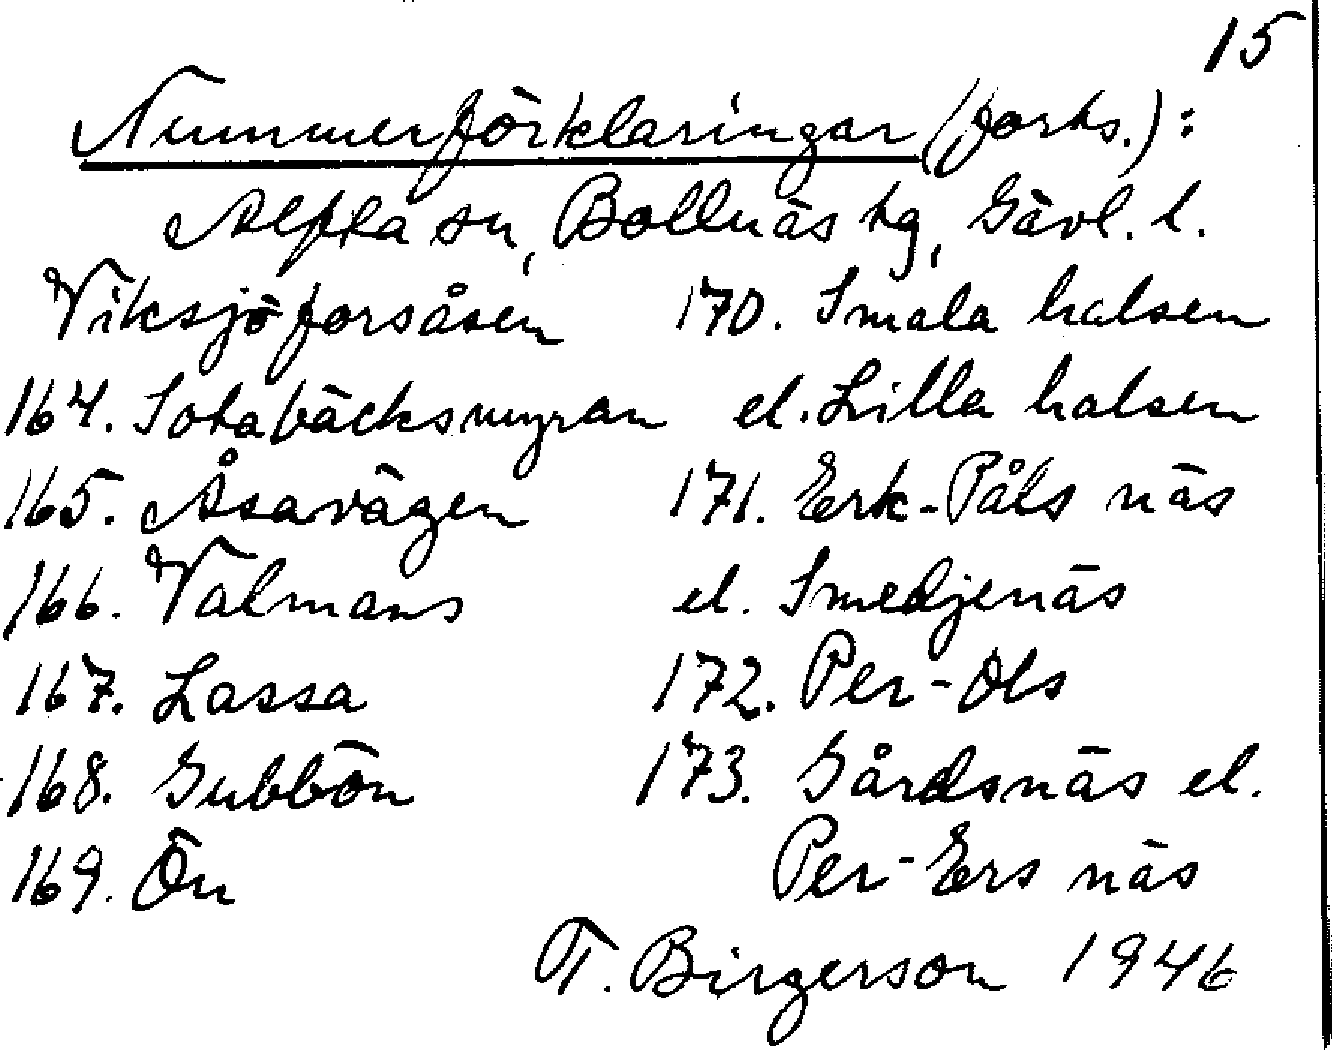 15
Nummerförklaringar (forts.):
Alfta sn, Bollnäs tg, Gävl. l.
Viksjöforsåsen
164. Sotabäcksmyran
165. Åsavägen
166. Valmans
167. Lassa
168. Gubbön
169. Ön
170. Smala halsen
el. Lilla halsen
171. Erk-Påls näs
el. Smedjenäs
172. Per-Ols
173. Gårdsnäs el.
Per-Ers näs
T. Birgerson 1946